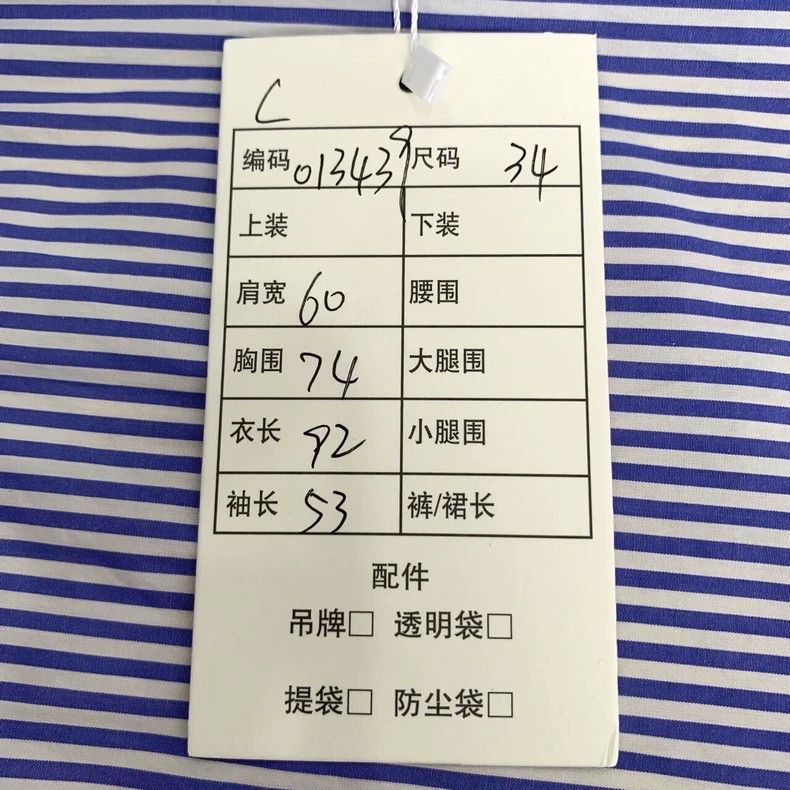 C
编码 013439 尺码 34
上装 下装
肩宽 60 腰围
胸围 74 大腿围
衣长 92 小腿围
袖长 53 裤/裙长
配件
吊牌□ 透明袋□
提袋□ 防尘袋□